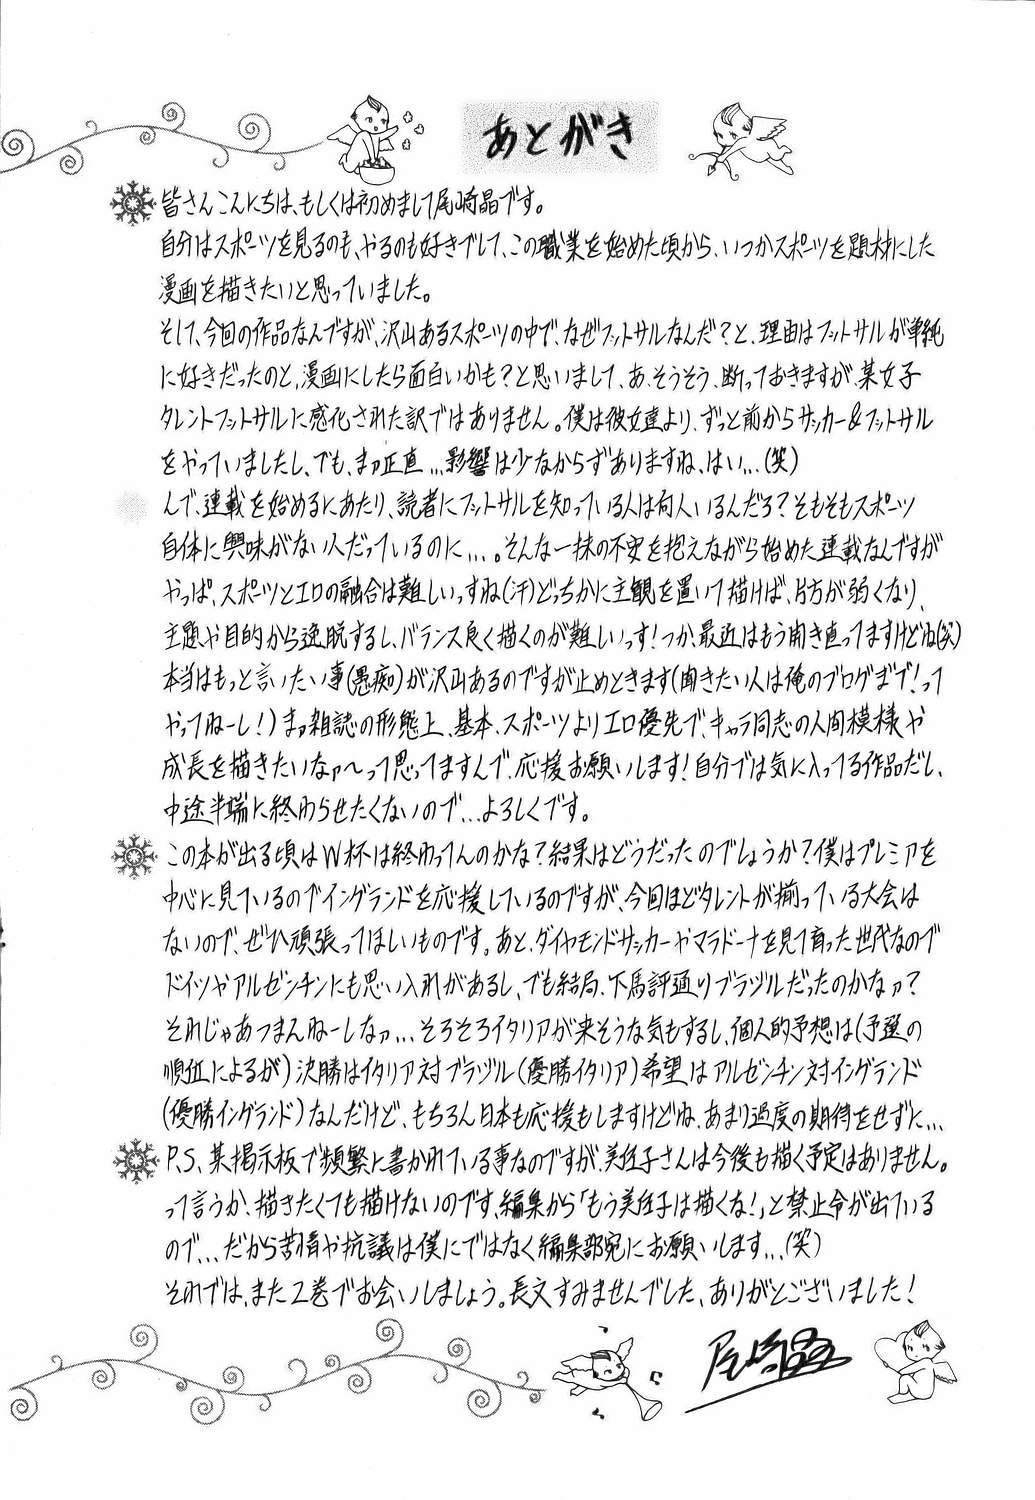 あとがき
皆さんこんにちは、もしくは初めまして尾崎晶です。
自分はスポーツを見るのも、やるのも好きでして、この職業を始めた頃から、いつかスポーツを題材にした
漫画を描きたいと思っていました。
そして、今回の作品なんですが、沢山あるスポーツの中で、なぜフットサルなんだ?と、理由はフットサルが単純
に好きだったのと、漫画にしたら面白いかも?と思いまして、あ、そうそう、断っておきますが、某女子
タレントフットサルに感化された訳ではありません。僕は彼女達より、ずっと前からサッカー&フットサル
をやっていましたし、でも、まァ正直...影響は少なからずありますね、はい...(笑)
んで、連載を始めるにあたり、読者にフットサルを知っている人は何人いるんだろ?そもそもスポーツ
自体に興味がない人だっているのに....。そんな一抹の不安を抱えながら始めた連載なんですが
やっぱ、スポーツとエロの融合は難しいっすね(汗)どっちかに主観を置いて描けば、片方が弱くなり、
主題や目的から逸脱するし、バランス良く描くのが難しいっす!つか、最近はもう開き直ってますけどね(笑)
本当はもっと言いたい事(愚痴)が沢山あるのですが止めときます(聞きたい人は俺のブログまで!って
やってねーし!)まァ雑誌の形態上、基本、スポーツよりエロ優先で、キャラ同志の人間模様や
成長を描きたいなァ〜って思ってますんで、応援お願いします!自分では気に入ってる作品だし、
中途半端に終わらせたくないので...よろしくです。
この本が出る頃はW杯は終わってんのかな?結果はどうだったのでしょうか?僕はプレミアを
中心に見ているのでイングランドを応援しているのですが、今回ほどタレントが揃っている大会は
ないので、ぜひ頑張ってほしいものです。あと、ダイヤモンドサッカーやマラドーナを見て育った世代なので
ドイツやアルゼンチンにも思い入れがあるし、でも結局、下馬評通りブラヅルだったのかなァ?
それじゃあつまんねーしなァ...そろそろイタリアが来そうな気もするし、個人的予想は(予選の
順位によるが)決勝はイタリア対ブラヅル(優勝イタリア)希望はアルゼンチン対イングランド
(優勝イングランド)なんだけど、もちろん日本も応援もしますけどね、あまり過度の期待をせずに...
P.S、某掲示板で頻繁に書かれている事なのですが、美佐子さんは今後も描く予定はありません。
って言うか、描きたくても描けないのです、編集から「もう美佐子は描くな!」と禁止令が出ている
ので...だから苦情や抗議は僕にではなく編集部宛にお願いします...(笑)
それでは、また2巻でお会いしましょう。長文すみませんでした、ありがとございました!
尾崎晶